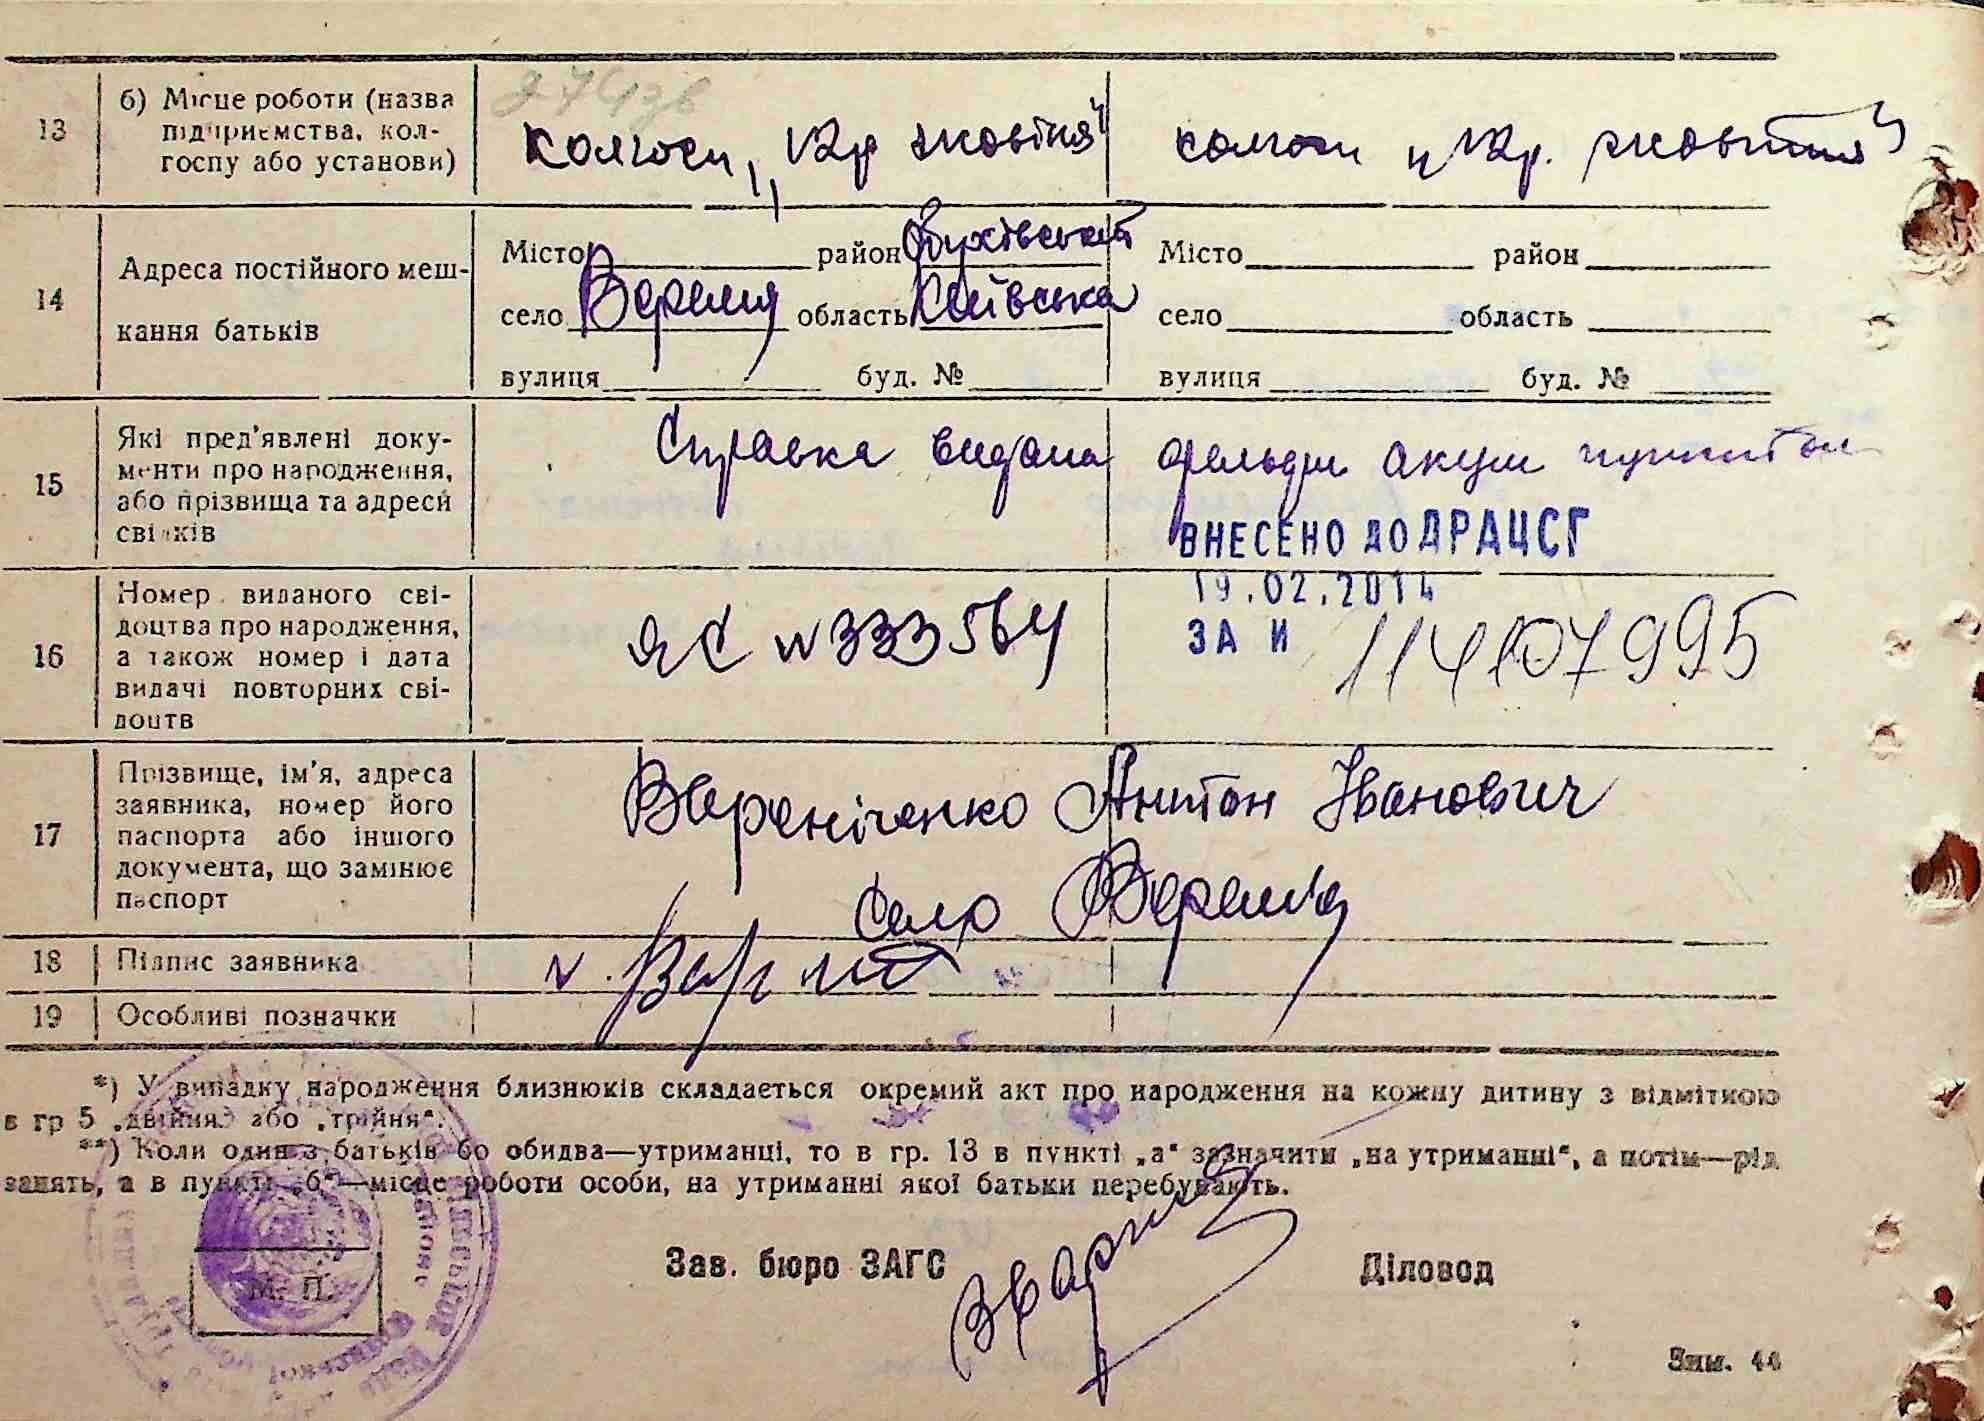 13
б) Місце роботи (назва
підприємства, кол-
госпу або установи)
колгосп „Чер жовтня“
колгосп „Чер. жовтня“
14
Адреса постійного меш-
кання батьків
Місто район Обухівський
село Веремя область Київська
вулиця буд. №
Місто район
село область
вулиця буд. №
15
Які пред’явлені доку-
менти про народження,
або прізвища та адреси
свідків
Справка видана фельдш акуш пунктом
ВНЕСЕНО ДО ДРАЦСГ
19.02.2014
ЗА И 114107995
16
Номер виданого сві-
доцтва про народження,
а також номер і дата
видачі повторних сві-
доцтв
ЯС N 333564
17
Прізвище, ім’я, адреса
заявника, номер його
паспорта або іншого
документа, що замінює
паспорт
Вереніченко Антон Іванович
село Веремя
18
Підпис заявника
19
Особливі позначки
*) У випадку народження близнюків складається окремий акт про народження на кожну дитину з відміткою
в гр 5 „двійня“ або „трійня“.
**) Коли один з батьків бо обидва—утриманці, то в гр. 13 в пункті „а“ зазначити „на утриманні“, а потім—рід
занять, а в пункті „б“—місце роботи особи, на утриманні якої батьки перебувають.
Зав. бюро ЗАГС
Діловод
М. П.
Зим. 44